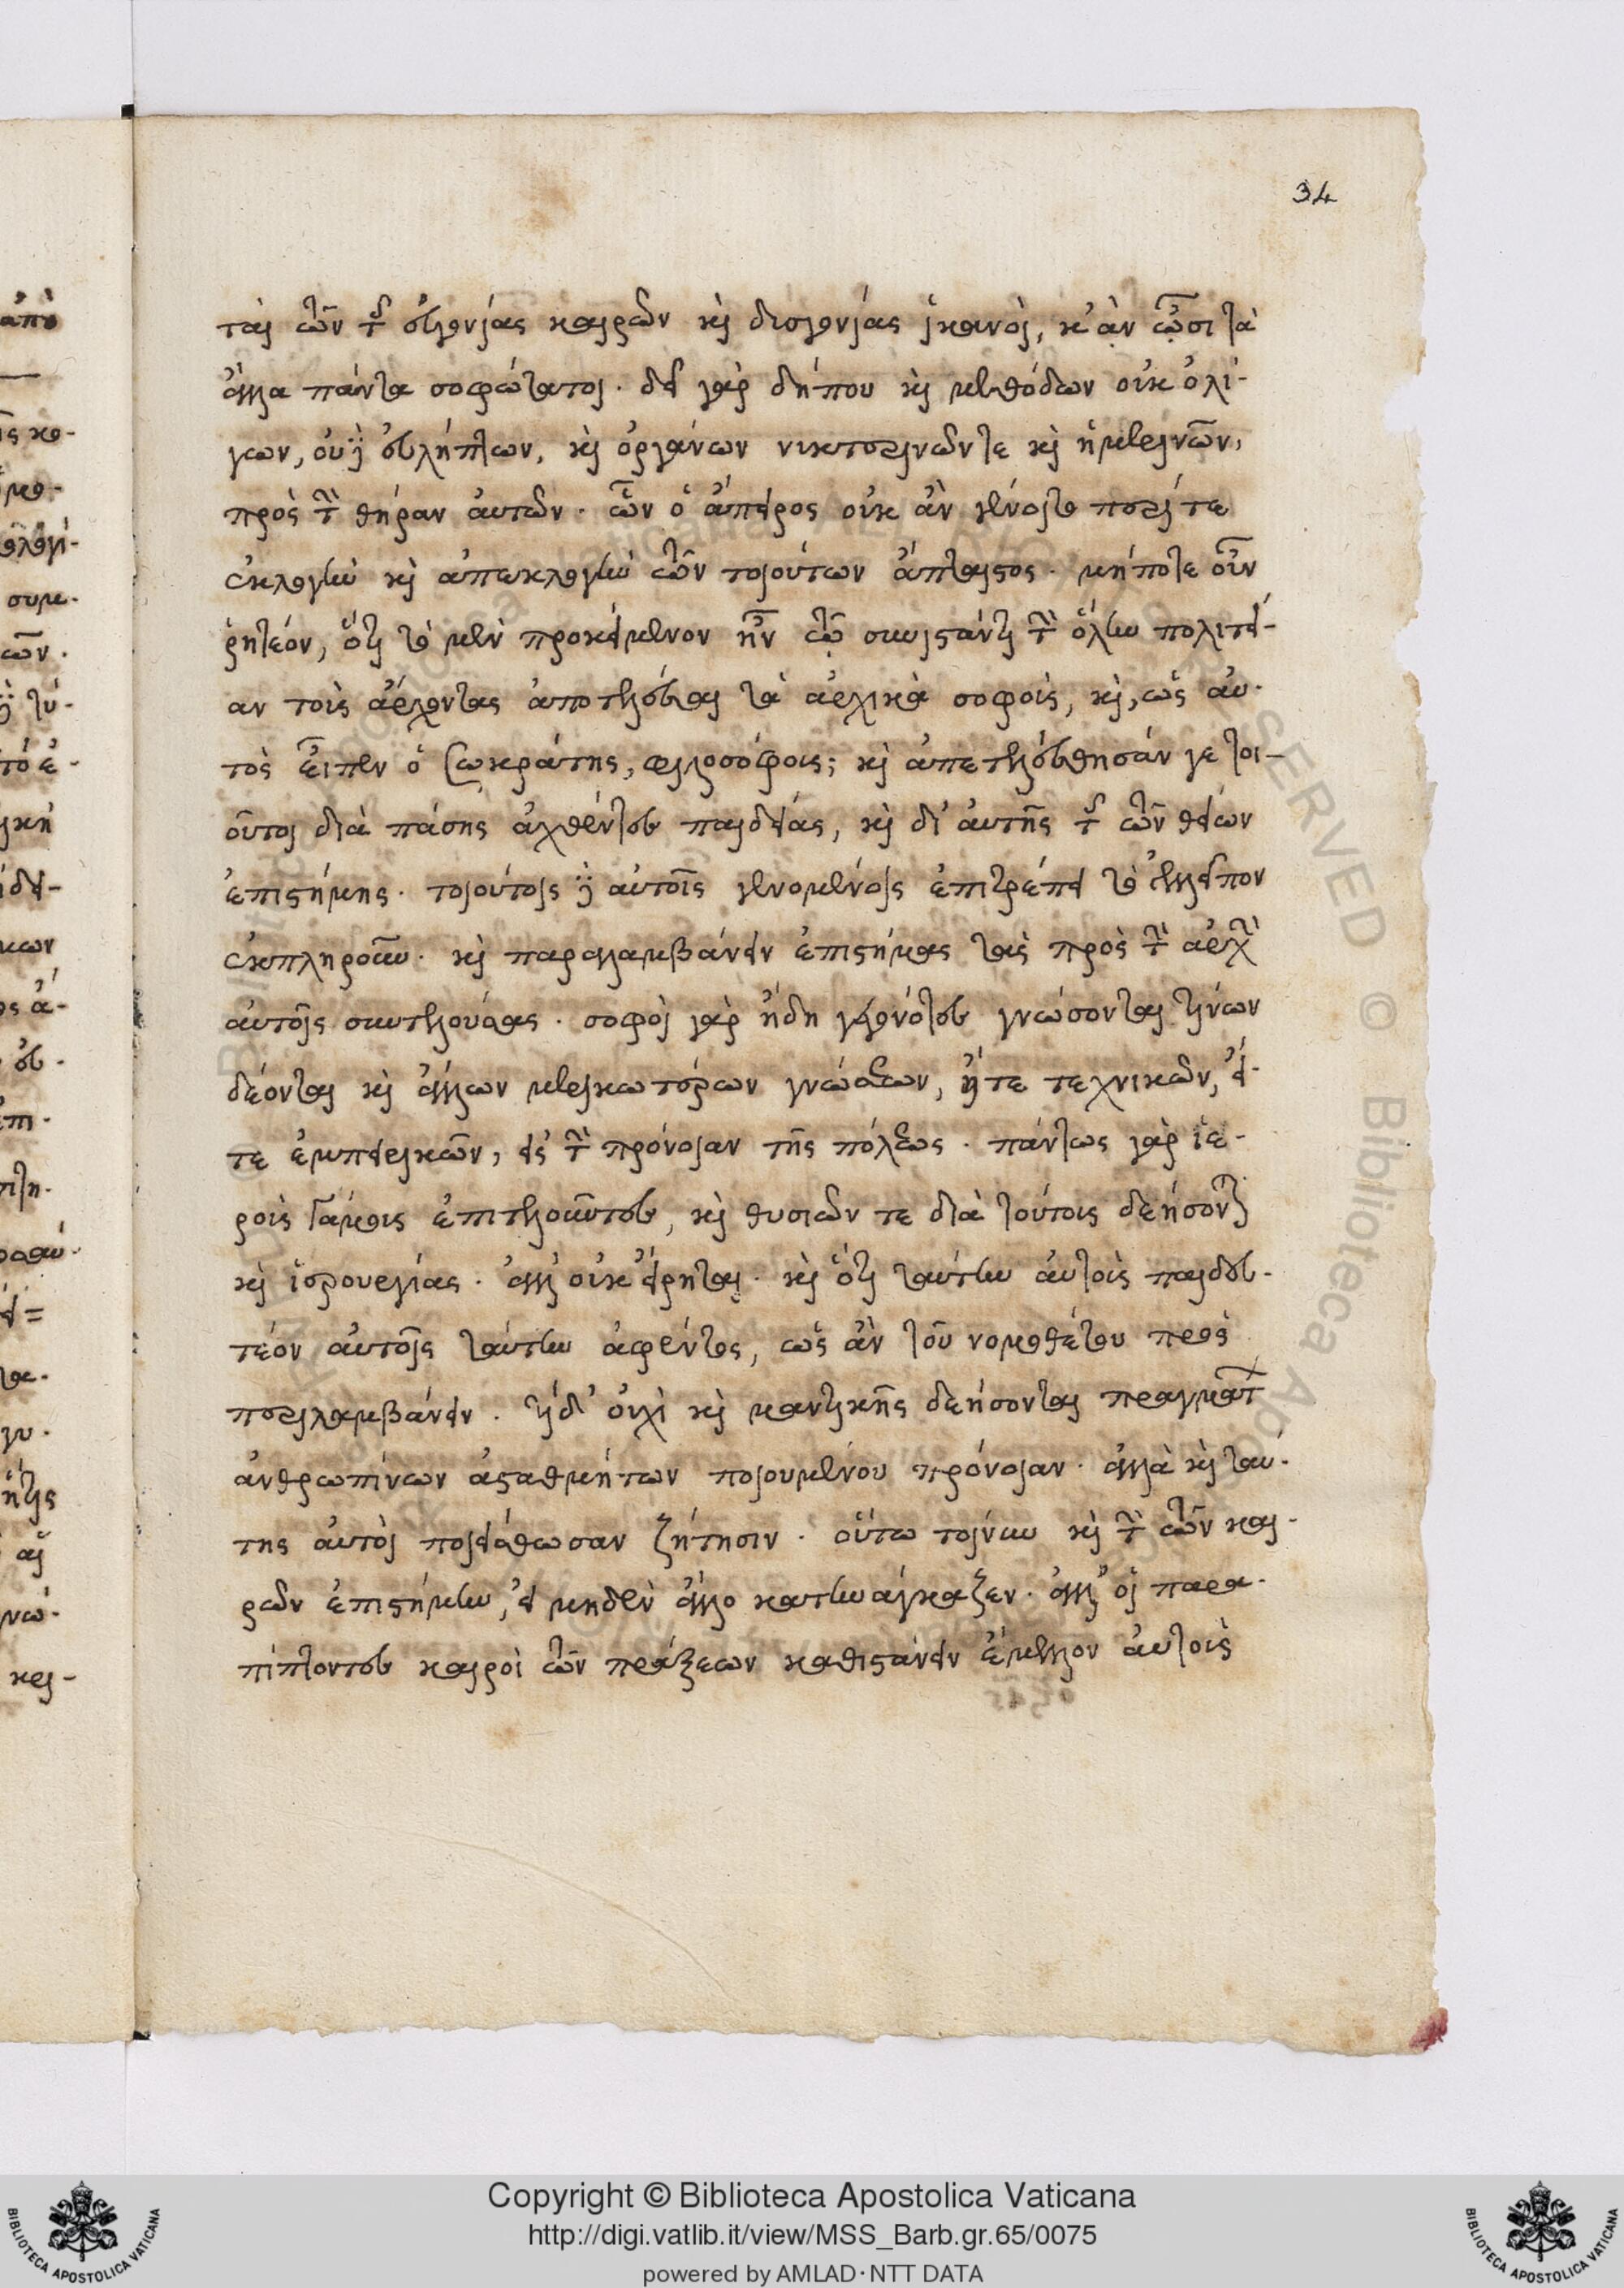 34
ται τῶν τῆς εὐγονίας καιρῶν καὶ δυσγονίας ἱκανοὶ, κ' ἂν ὦσι τὰ
ἄλλα πάντα σοφώτατοι. δεῖ γὰρ δήπου καὶ μεθόδων οὐκ ὀλί-
γων, οὐδὲ εὐλήπτων, καὶ ὀργάνων νυκτερινῶν τε καὶ ἡμερινῶν,
πρὸς τὴν θήραν αὐτῶν. ὧν ὁ ἄπειρος οὐκ ἂν γένοιτο περί τε
ἐκλογὴν καὶ ἀπεκλογὴν τῶν τοιούτων ἄπταιστος. μήποτε οὖν
ῥητέον, ὅτι τὸ μὲν προκείμενον ἦν τῷ συνιστάντι τὴν ὅλην πολιτεί-
αν τοὺς ἄρχοντας ἀποτελέσαι τὰ ἀρχικὰ σοφοὺς, καὶ, ὡς αὐ-
τὸς εἶπεν ὁ Σωκράτης, φιλοσόφους; καὶ ἀπετελέσθησάν γε τοι-
οῦτοι διὰ πάσης ἀχθέντες παιδείας, καὶ δι' αὐτῆς τῆς τῶν θείων
ἐπιστήμης. τοιούτοις δὲ αὐτοῖς γενομένοις ἐπιτρέπει τὸ ἐλλεῖπον
ἐκπληροῦν. καὶ παραλαμβάνειν ἐπιστήμας τὰς πρὸς τὴν ἀρχὴν
αὐτοῖς συντελούσας. σοφοὶ γὰρ ἤδη γεγονότες γνώσονται τίνων
δέονται καὶ ἄλλων μερικωτέρων γνώσεων, ἤτε τεχνικῶν, εἴ-
τε ἐμπειρικῶν, εἰς τὴν πρόνοιαν τῆς πόλεως. πάντως γὰρ ἱε-
ροὺς γάμους ἐπιτελοῦντες, καὶ θυσιῶν τε διὰ τούτους δεήσονται
καὶ ἱερουργίας. ἀλλ' οὐκ εἴρηται. καὶ ὅτι ταύτην αὐτοὺς παιδευ-
τέον αὐτοῖς ταύτην ἀφέντος, ὡς ἂν τοῦ νομοθέτου προς
περιλαμβάνειν. τί δ' οὐχὶ καὶ μαντικῆς δεήσονται πραγμάτων
ἀνθρωπίνων ἀσταθμήτων ποιουμένου πρόνοιαν. ἀλλὰ καὶ ταύ-
της αὐτοὶ ποιείσθωσαν ζήτησιν. οὕτω τοίνυν καὶ τὴν τῶν και-
ρῶν ἐπιστήμην, εἰ μηδὲν ἄλλο κατηνάγκαζεν. ἀλλ' οἱ παρα-
πίπτοντες καιροὶ τῶν πράξεων καθιστάνειν ἔμελλον αὐτοὺς
Copyright © Biblioteca Apostolica Vaticana
http://digi.vatlib.it/view/MSS_Barb.gr.65/0075
powered by AMLAD·NTT DATA
BIBLIOTECA APOSTOLICA VATICANA
BIBLIOTECA APOSTOLICA VATICANA